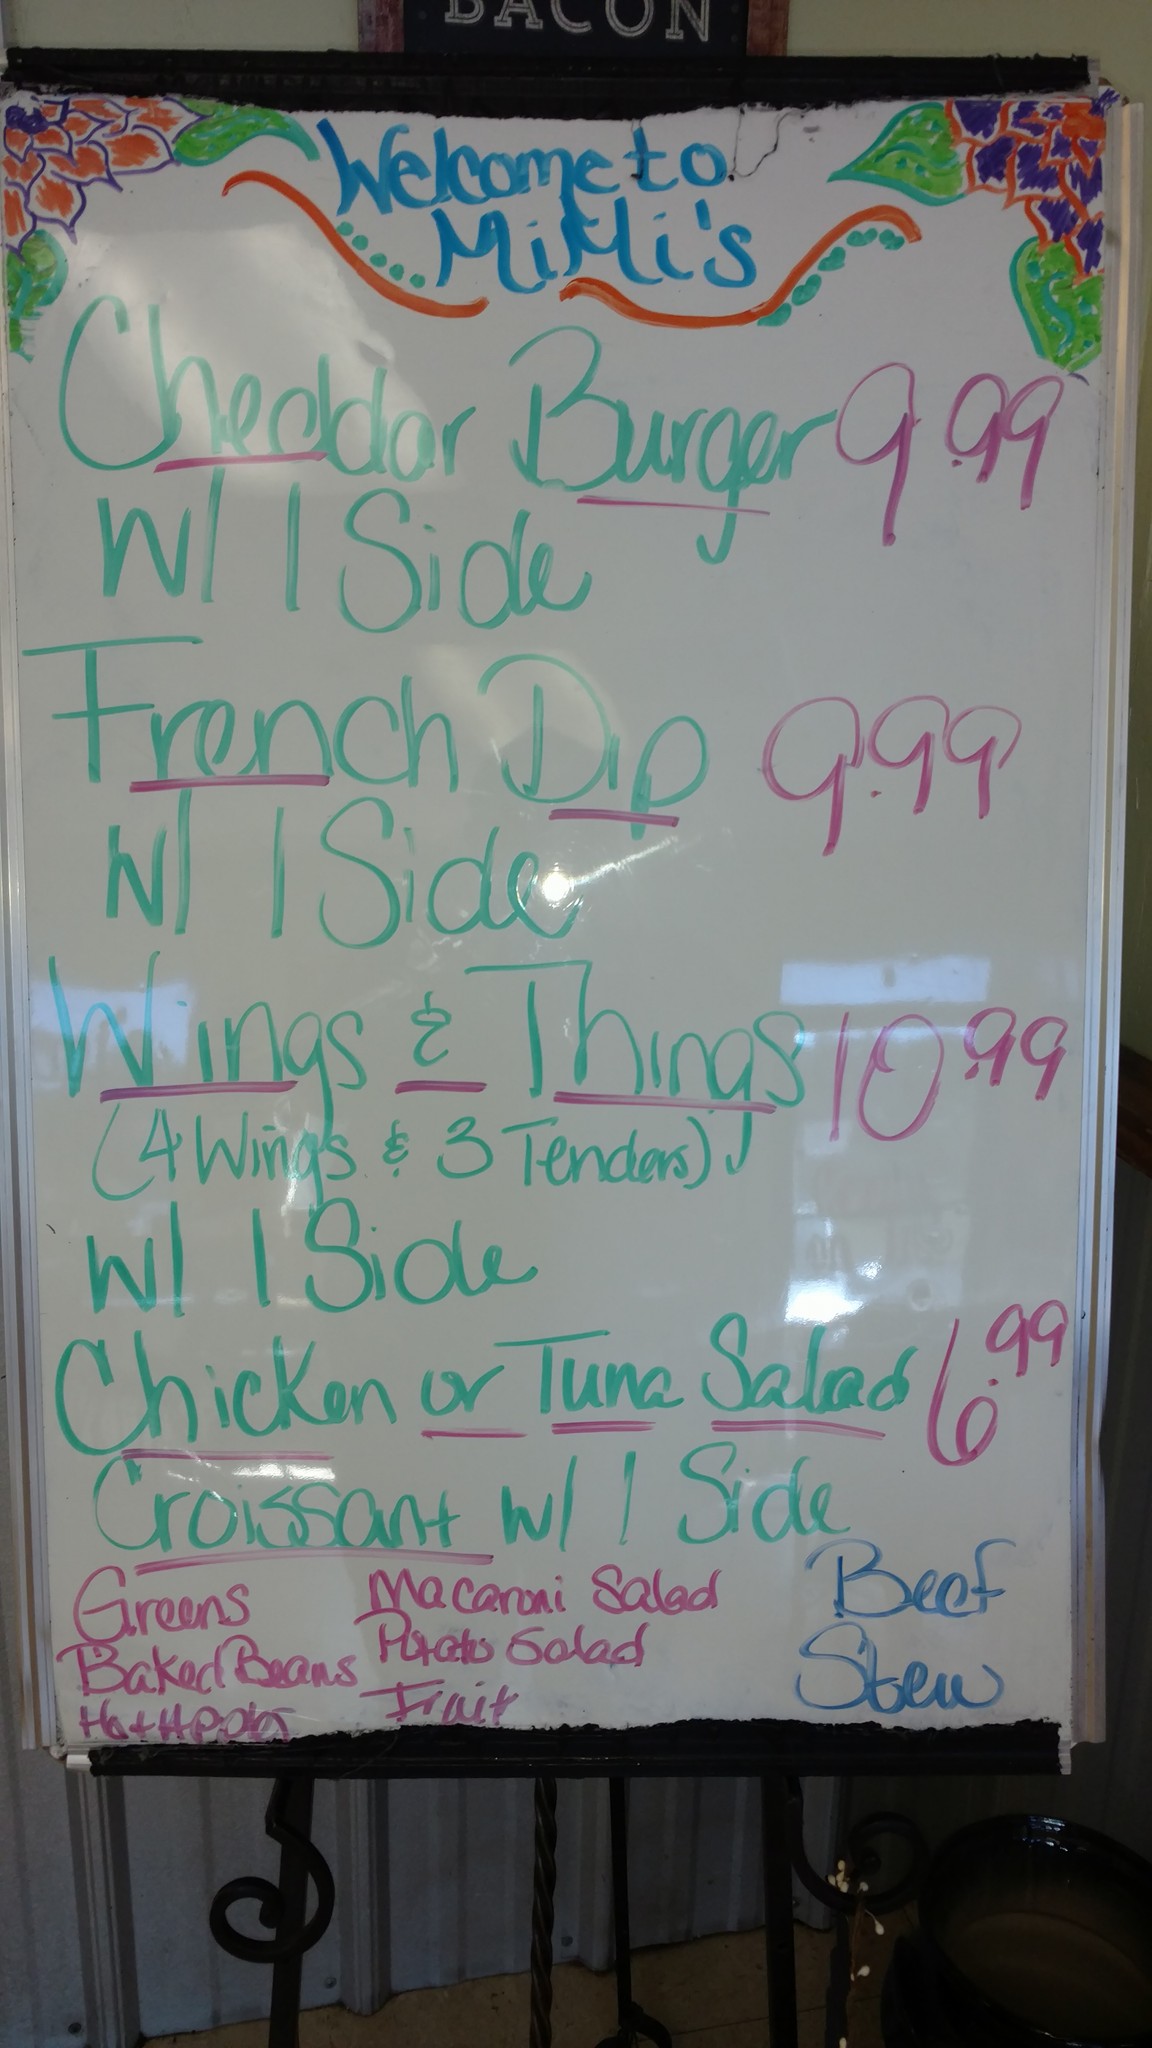 BACON
Welcome to
MiMi's
Cheddar Burger 9.99
W/ 1 Side
French Dip 9.99
W/ 1 Side
Wings & Things 10.99
(4 Wings & 3 Tenders)
W/ 1 Side
Chicken or Tuna Salad 6.99
Croissant w/ 1 Side
Greens
Baked Beans
Macaroni Salad
Potato Salad
Fruit
Beef
Stew